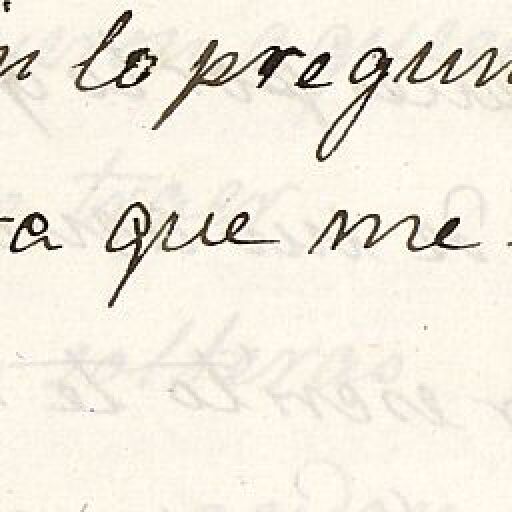 n lo pregun
ta que me